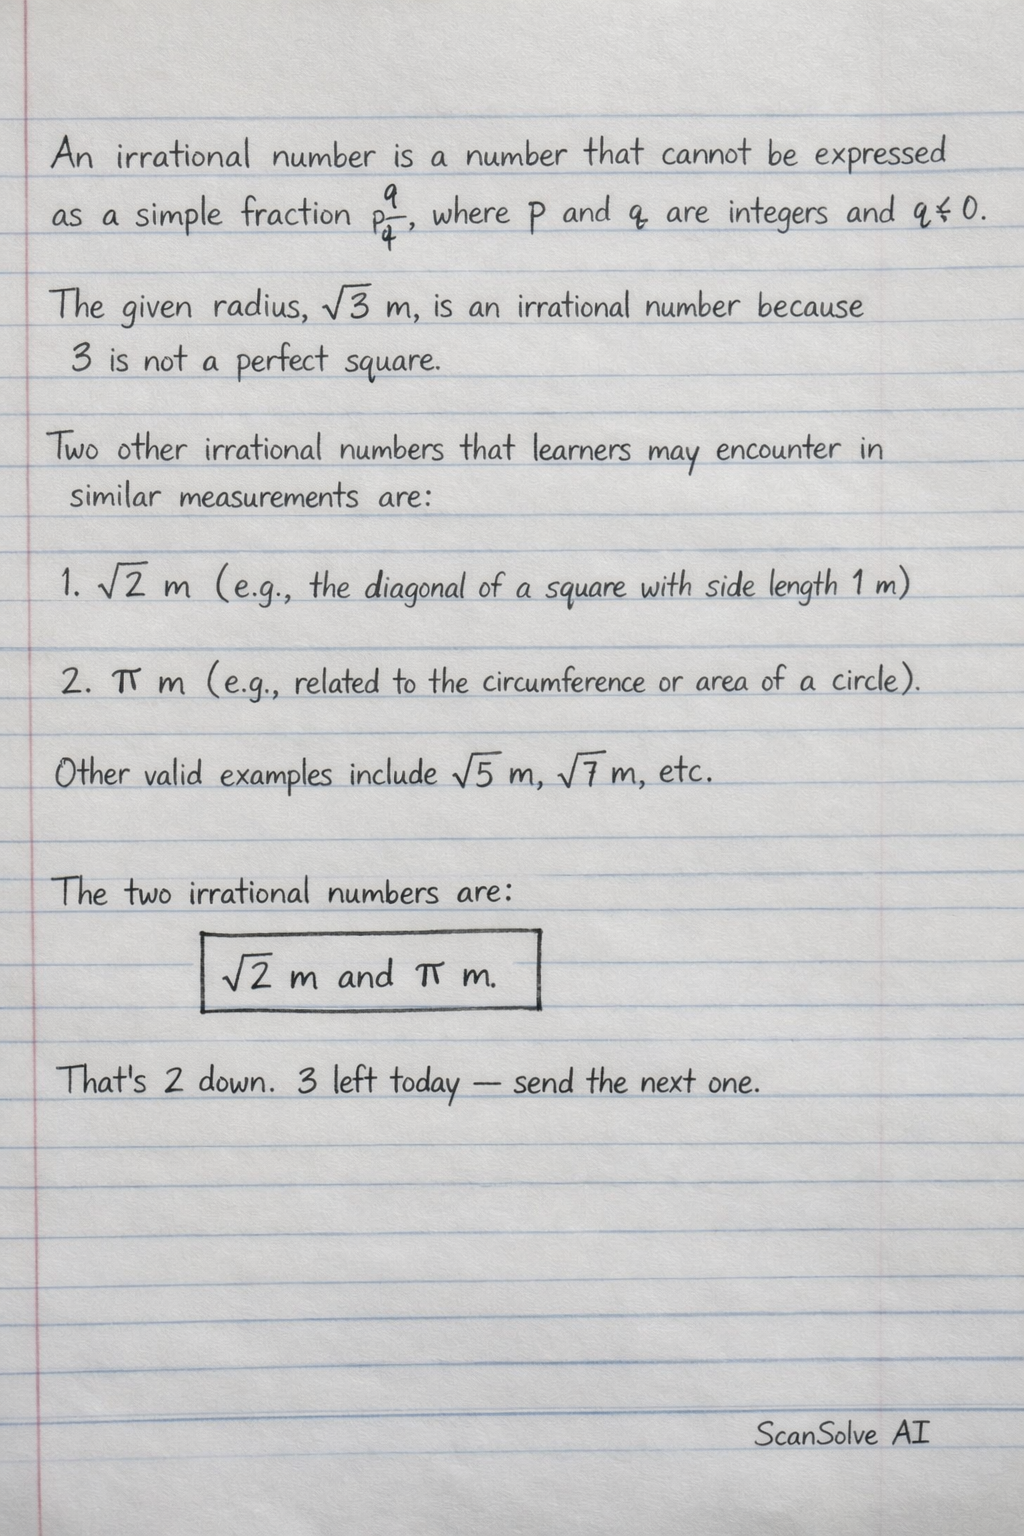 An irrational number is a number that cannot be expressed
as a simple fraction p q/q, where p and q are integers and q ≰ 0.
The given radius, √3 m, is an irrational number because
3 is not a perfect square.
Two other irrational numbers that learners may encounter in
similar measurements are:
1. √2 m (e.g., the diagonal of a square with side length 1 m)
2. π m (e.g., related to the circumference or area of a circle).
Other valid examples include √5 m, √7 m, etc.
The two irrational numbers are:
√2 m and π m.
That's 2 down. 3 left today — send the next one.
ScanSolve AI